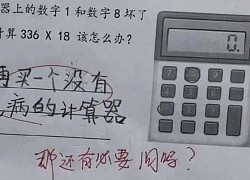 器上的数字1和数字8坏了
计算336 X 18 该怎么办?
再买一个没有
病的计算器
0.
那还有必要问吗?